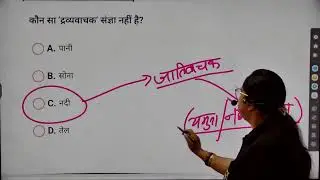 कौन सा 'द्रव्यवाचक' संज्ञा नहीं है?
A. पानी
B. सोना
C. नदी
D. तेल
जातिवाचक